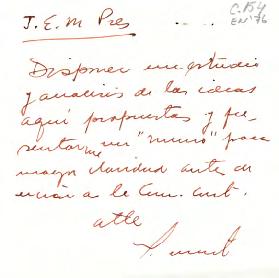 J. E. M Pres
C. 154
EN '76
Disponer un estudio
y analisis de las ideas
aquí propuestas y pre-
sentarme un "memo" para
mayor claridad antes de
enviar a la Com. Cont.
atte